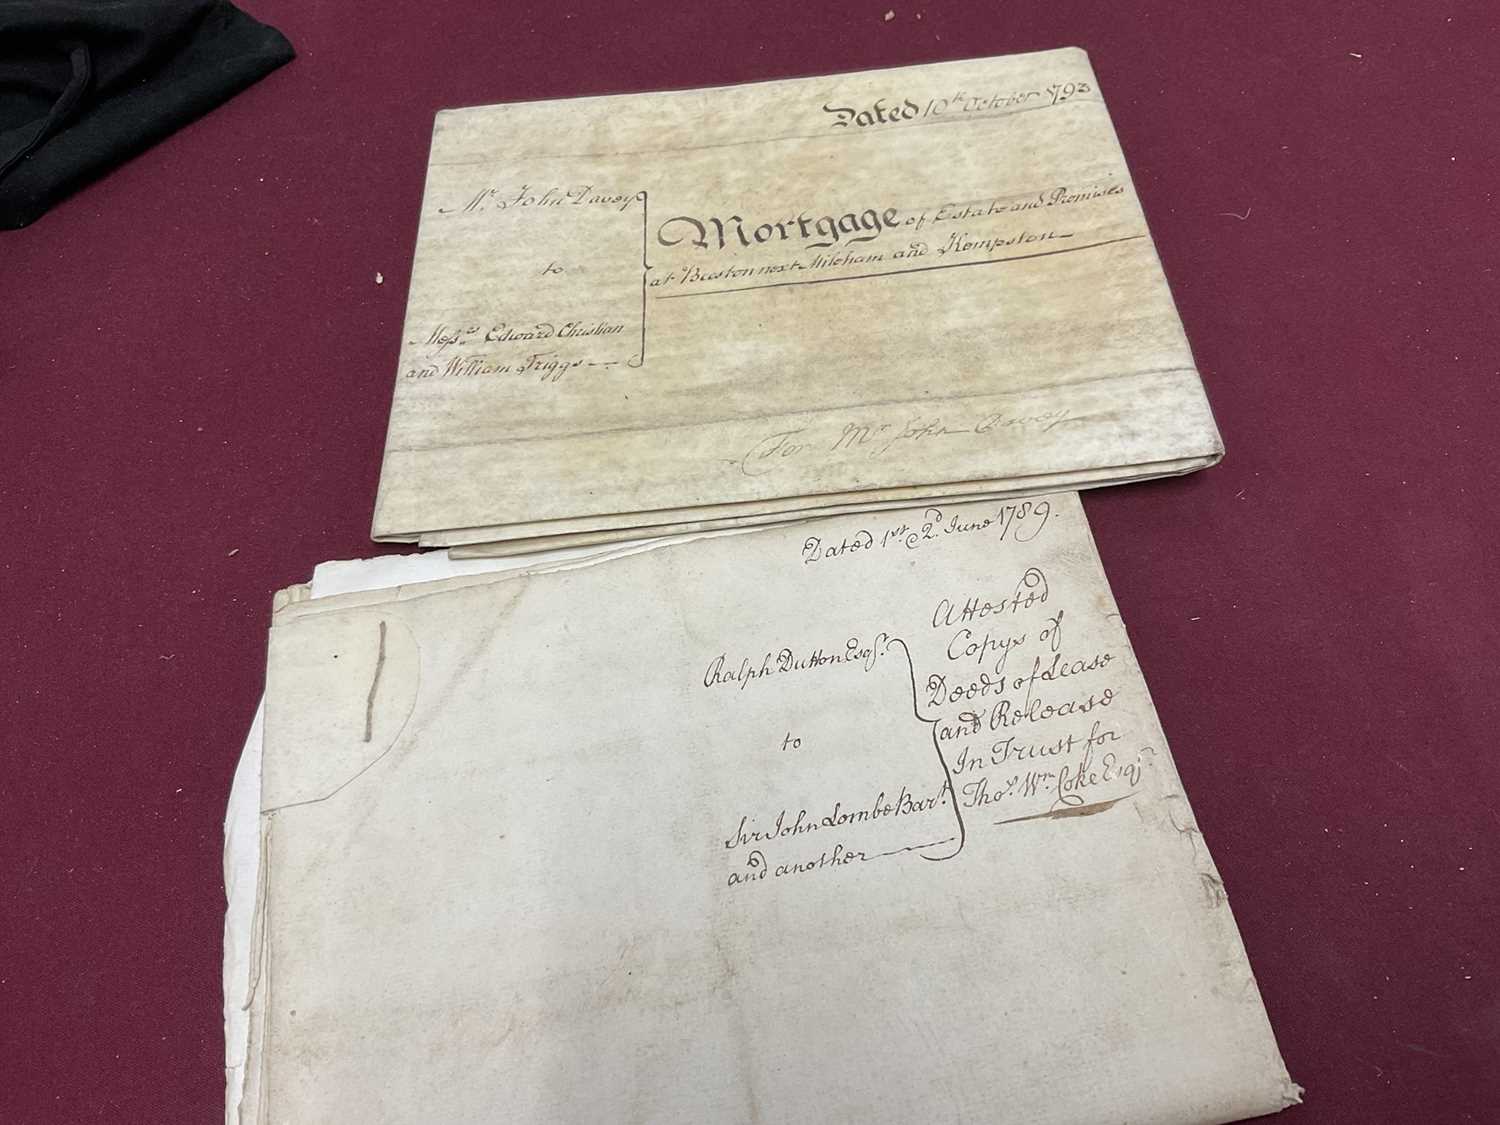 Dated 10th October 1793
Mr. John Davey
to
Messrs. Edward Christian
and William Triggs
Mortgage of Estate and Premises
at Beeston next Mileham and Kempston
For Mr John Davey
Dated 1st. & 2d. June 1789.
Ralph Dutton Esqr.
to
Sir John Lombe Bart.
and another
Attested
Copys of
Deeds of Lease
and Release
In Trust for
Thos. Wm. Coke Esqr.